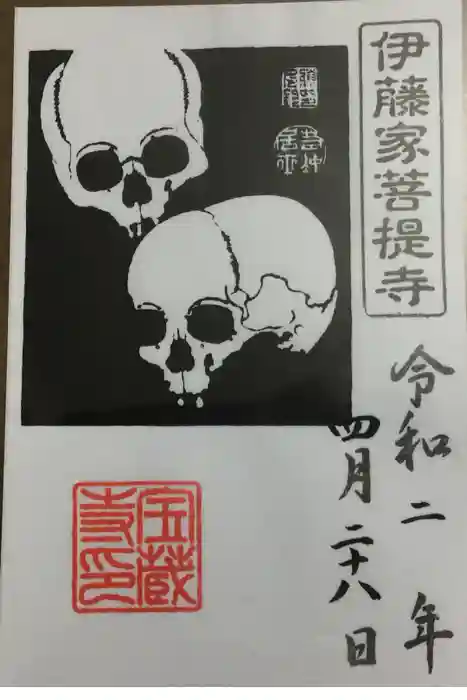 伊藤家菩提寺
令和二年
四月二十八日
宝蔵
寺印